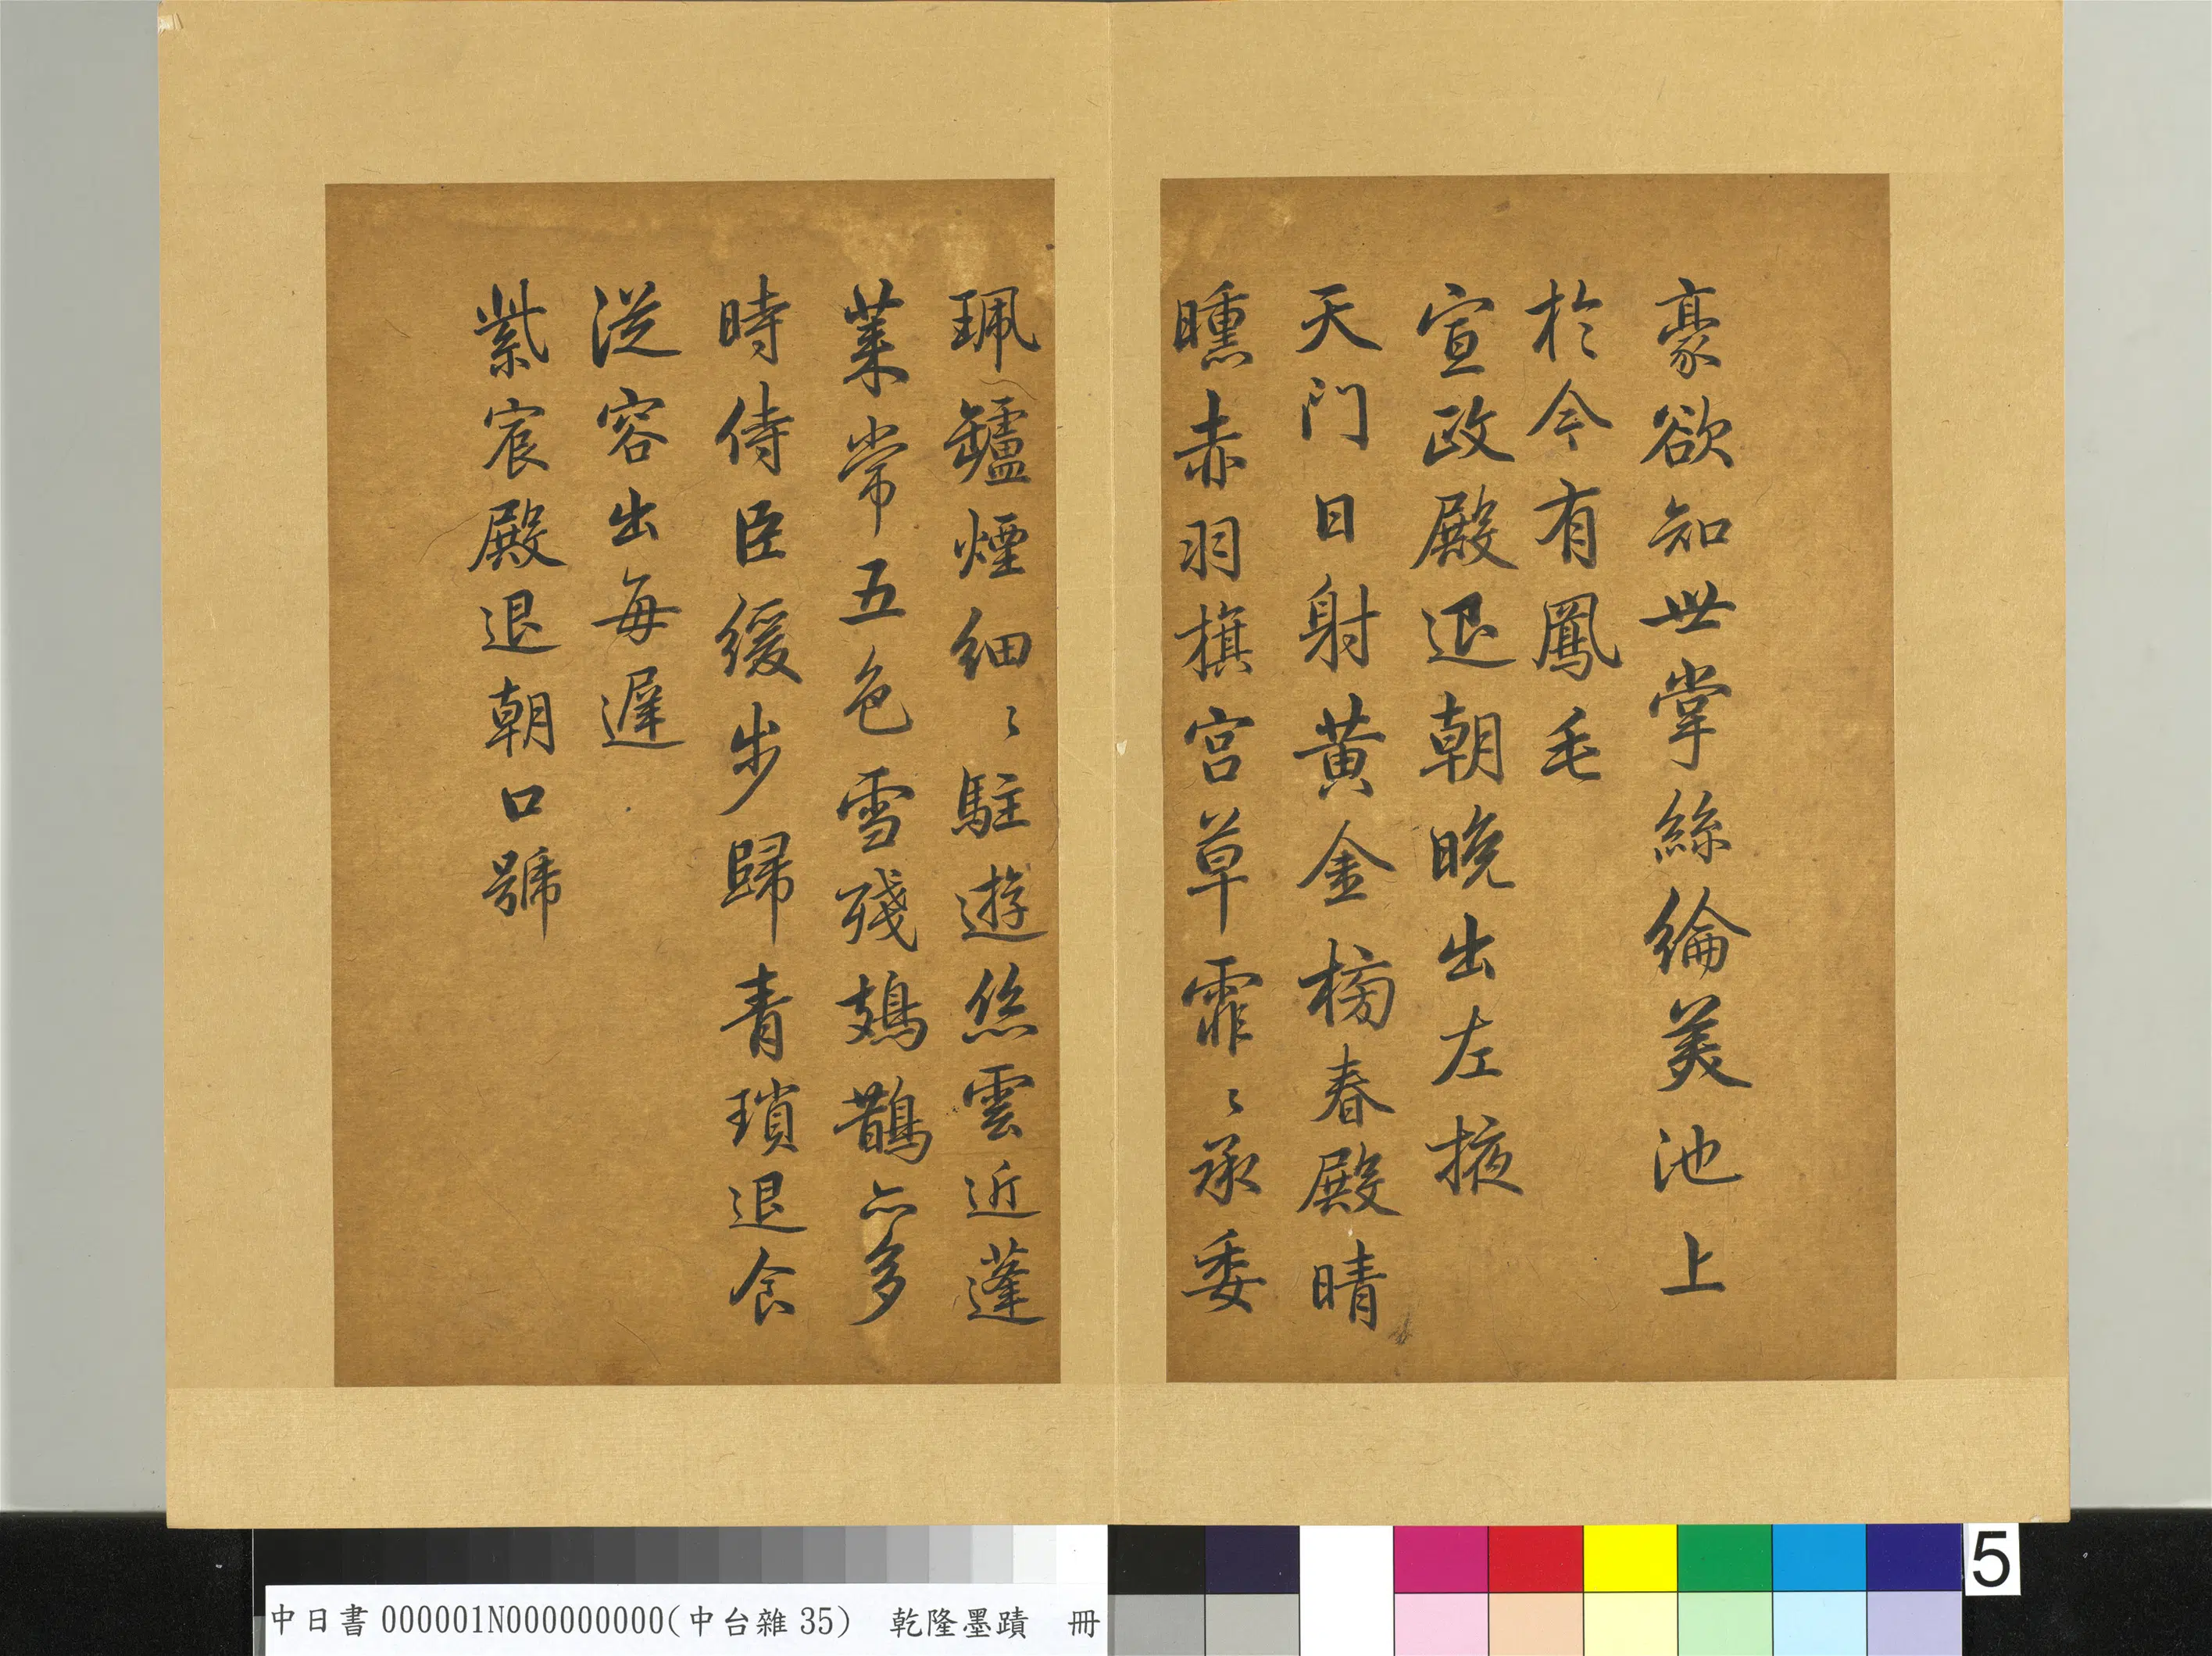 豪欲知世掌絲綸美池上
於今有鳳毛
宣政殿退朝晚出左掖
天門日射黃金榜春殿晴
曛赤羽旗宮草霏〻承委
珮鑪煙細〻駐遊絲雲近蓬
萊常五色雪殘鳷鵲亦多
時侍臣緩步歸青瑣退食
從容出每遲
紫宸殿退朝口號
5
中日書000001N000000000(中台雜35) 乾隆墨蹟 冊